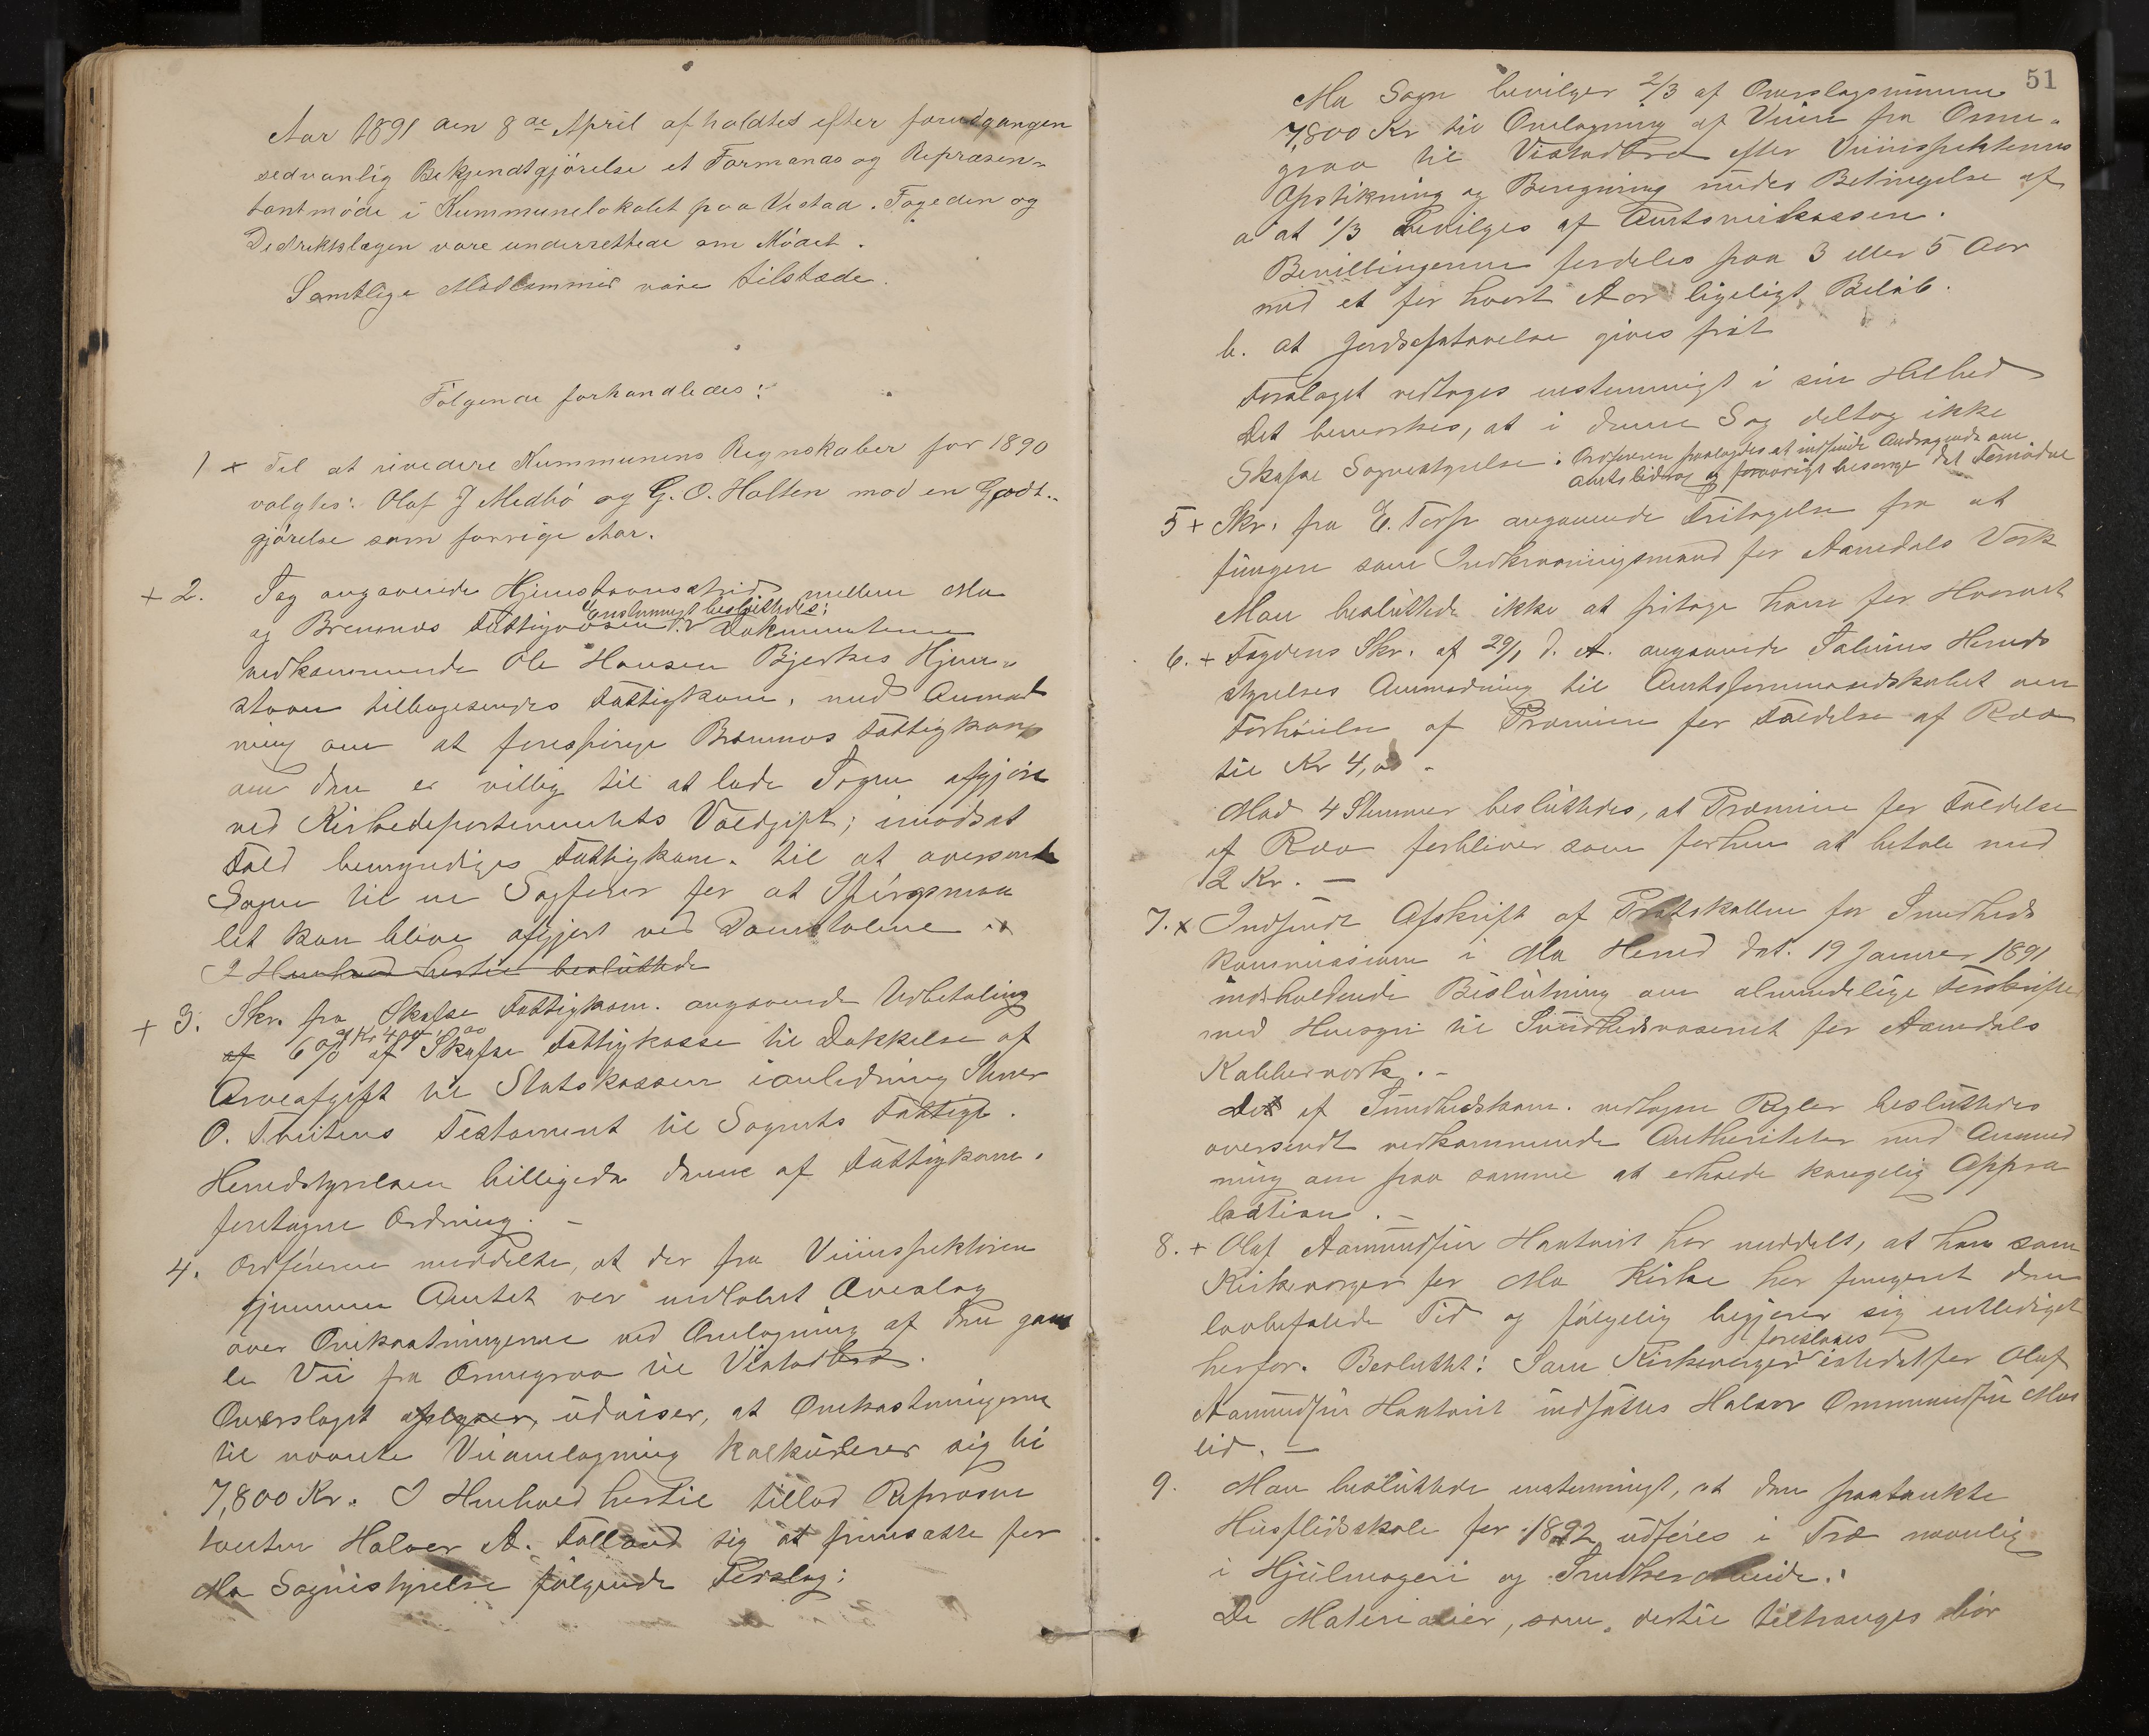 Aar 1891 den 8de April afholdtes efter forudgangen
sedvanlig Bekjendtgjörelse et Formands og Repræsen-
tantmöde i Kummunelokalet paa Vistad. Fogeden og
Distriktslægen vare underrettede om Mödet.
Samtlige Medlemmer vare tilstæde.
Fölgende forhandledes:
1 + Til at revidere Kummunens Regnskaber for 1890
valgtes: Olaf J Medbö og G. O. Holten mod en Godt-
gjörelse som forrige Aar.
+ 2. Sag angaaende Hjemstavnsstrid mellem Mo
Enstemmigt besluttedes:
og Bremnæs Fattigvæsen. Dokumenterne
vedkommende Ole Hansen Bjerkes Hjem-
stavn tilbagesendes Fattigkom. med Anmod
ning om at forespørge Bremnæs Fattigkom
om den er villig til at lade Sagen afgjøre
ved Kirkedepartementets Voldgift; imodsat
Fald bemyndiges Fattigkom. til at oversende
Sagen til en Sagfører for at Spørgsmaa
let kan blive afgjort ved Domstolene
I Henhold hertil besluttede
+ 3. Skr. fra Skafse Fattigkom. angaaende Udbetaling
af 6 % af Skafse Fattigkasse til Dækkelse af
Arveafgift til Statskassen i anledning Stener
O. Tveitens Testament til Sognets Fattige.
Herredstyrelsen billigede denne af Fattigkom.
foretagne Ordning. –
4. Ordføreren meddelte, at der fra Veiinspektøren
gjennem Amtet var indløbet Overslag
over Omkostningerne ved Omlægning af den gam
le Vei fra Ormegraa til Vistadbro.
Overslaget udviser, at Omkostningerne
til nævnte Veiomlægning kalkulerer sig til
7,800 Kr. I Henhold hertil tillod Repræsen
tanten Halvor A. Folland sig at fremsætte for
Mo Sognestyrelse følgende Forslag:
51
Mo Sogn bevilger 2/3 af Overslagsummen
7,800 Kr til Omlægning af Veien fra Orme-
graa til Vistadbro efter Veiinspektørens
Opstikning og Beregning under Betingelse af
a at 1/3 bevilges af Amtsveikassen.
Bevillingerne fordeles paa 3 eller 5 Aar
med et for hvert Aar ligeligt Beløb.
b. at Jordafstaaelse gives frit
Forslaget vedtoges enstemmigt i sin Helhed
Det bemærkes, at i denne Sag deltog ikke
Skafse Sognestyrelse. Ordføreren paalagdes at indsende Andragende om
Amtsbidrag og forøvrigt besørge det fornødne
5 + Skr. fra E. Torp angaaende Fritagelse fra at
fungere som Indkrævningsmand for Aamdals Værk
Man besluttede ikke at fritage ham for Hvervet
6. + Fogdens Skr. af 29/1 d. A. angaaende Herreds
styrelses Anmodning til Amtsformandskabet om
Forhøielse af Præmien for Fældelse af Ræv
til Kr 4,00 –
Mod 4 Stemmer besluttedes, at Præmien for Fældelse
af Ræv forbliver som forhen at betale med
2 Kr. –
7. x Indsendt Afskrift af Protokollen for Sundheds
kommissionen i Mo Herred dat. 19 Januar 1891
indeholdende Beslutning om almindelige Forskrifter
med Hensyn til Sundhedsvæsenet for Aamdals
Kobberværk. –
De af Sundhedskom. vedtagne Regler besluttedes
oversendt vedkommende Autoriteter med Anmod
ning om paa samme at erholde kongelig Appro
bation. –
8. + Olaf Aamundsen Haatveit har meddelt, at han som
Kirkeverger for Mo Kirke har fungeret den
lovbefalede Tid og følgelig begjærer sig entlediget
foreslaaes
herfor. Besluttet: Som Kirkeverger istedetfor Olaf
Aamundsen Haatveit indsættes Halvor Ommundsen Mos
lid. –
9. Man besluttede enstemmigt, at den paatænkte
Husflidsskole for 1892 udføres i Træ navnlig
i Hjulmageri og Snedkerarbeide.
De Materialier, som dertil tiltrænges bør